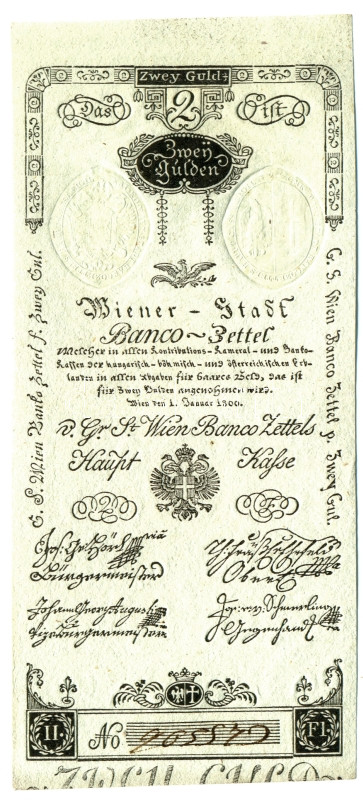 Zwey Guld
Das 2 ist
Zweÿ
Gulden
Wiener - Stadt
Banco ~ Zettel
Welcher in allen Kontributions - Kameral - und Banko-
Kassen der hungarisch - böhmisch - und österreichischen Erb-
landen in allen Abgaben für baares Geld, das ist
für Zwey Gulden angenohmen wird.
Wien den 1. Januar 1800.
v. Gr. St. Wien Banco Zettels
Haupt Kasse
G. S. Wien Banko Zettel p. Zwey Gul.
G. S. Wien Banko Zettel p. Zwey Gul.
2 F
Bürgermeister
Johann Georg Augusti
Vizebürgermeister
II. No Fl.
ZWEY GULD